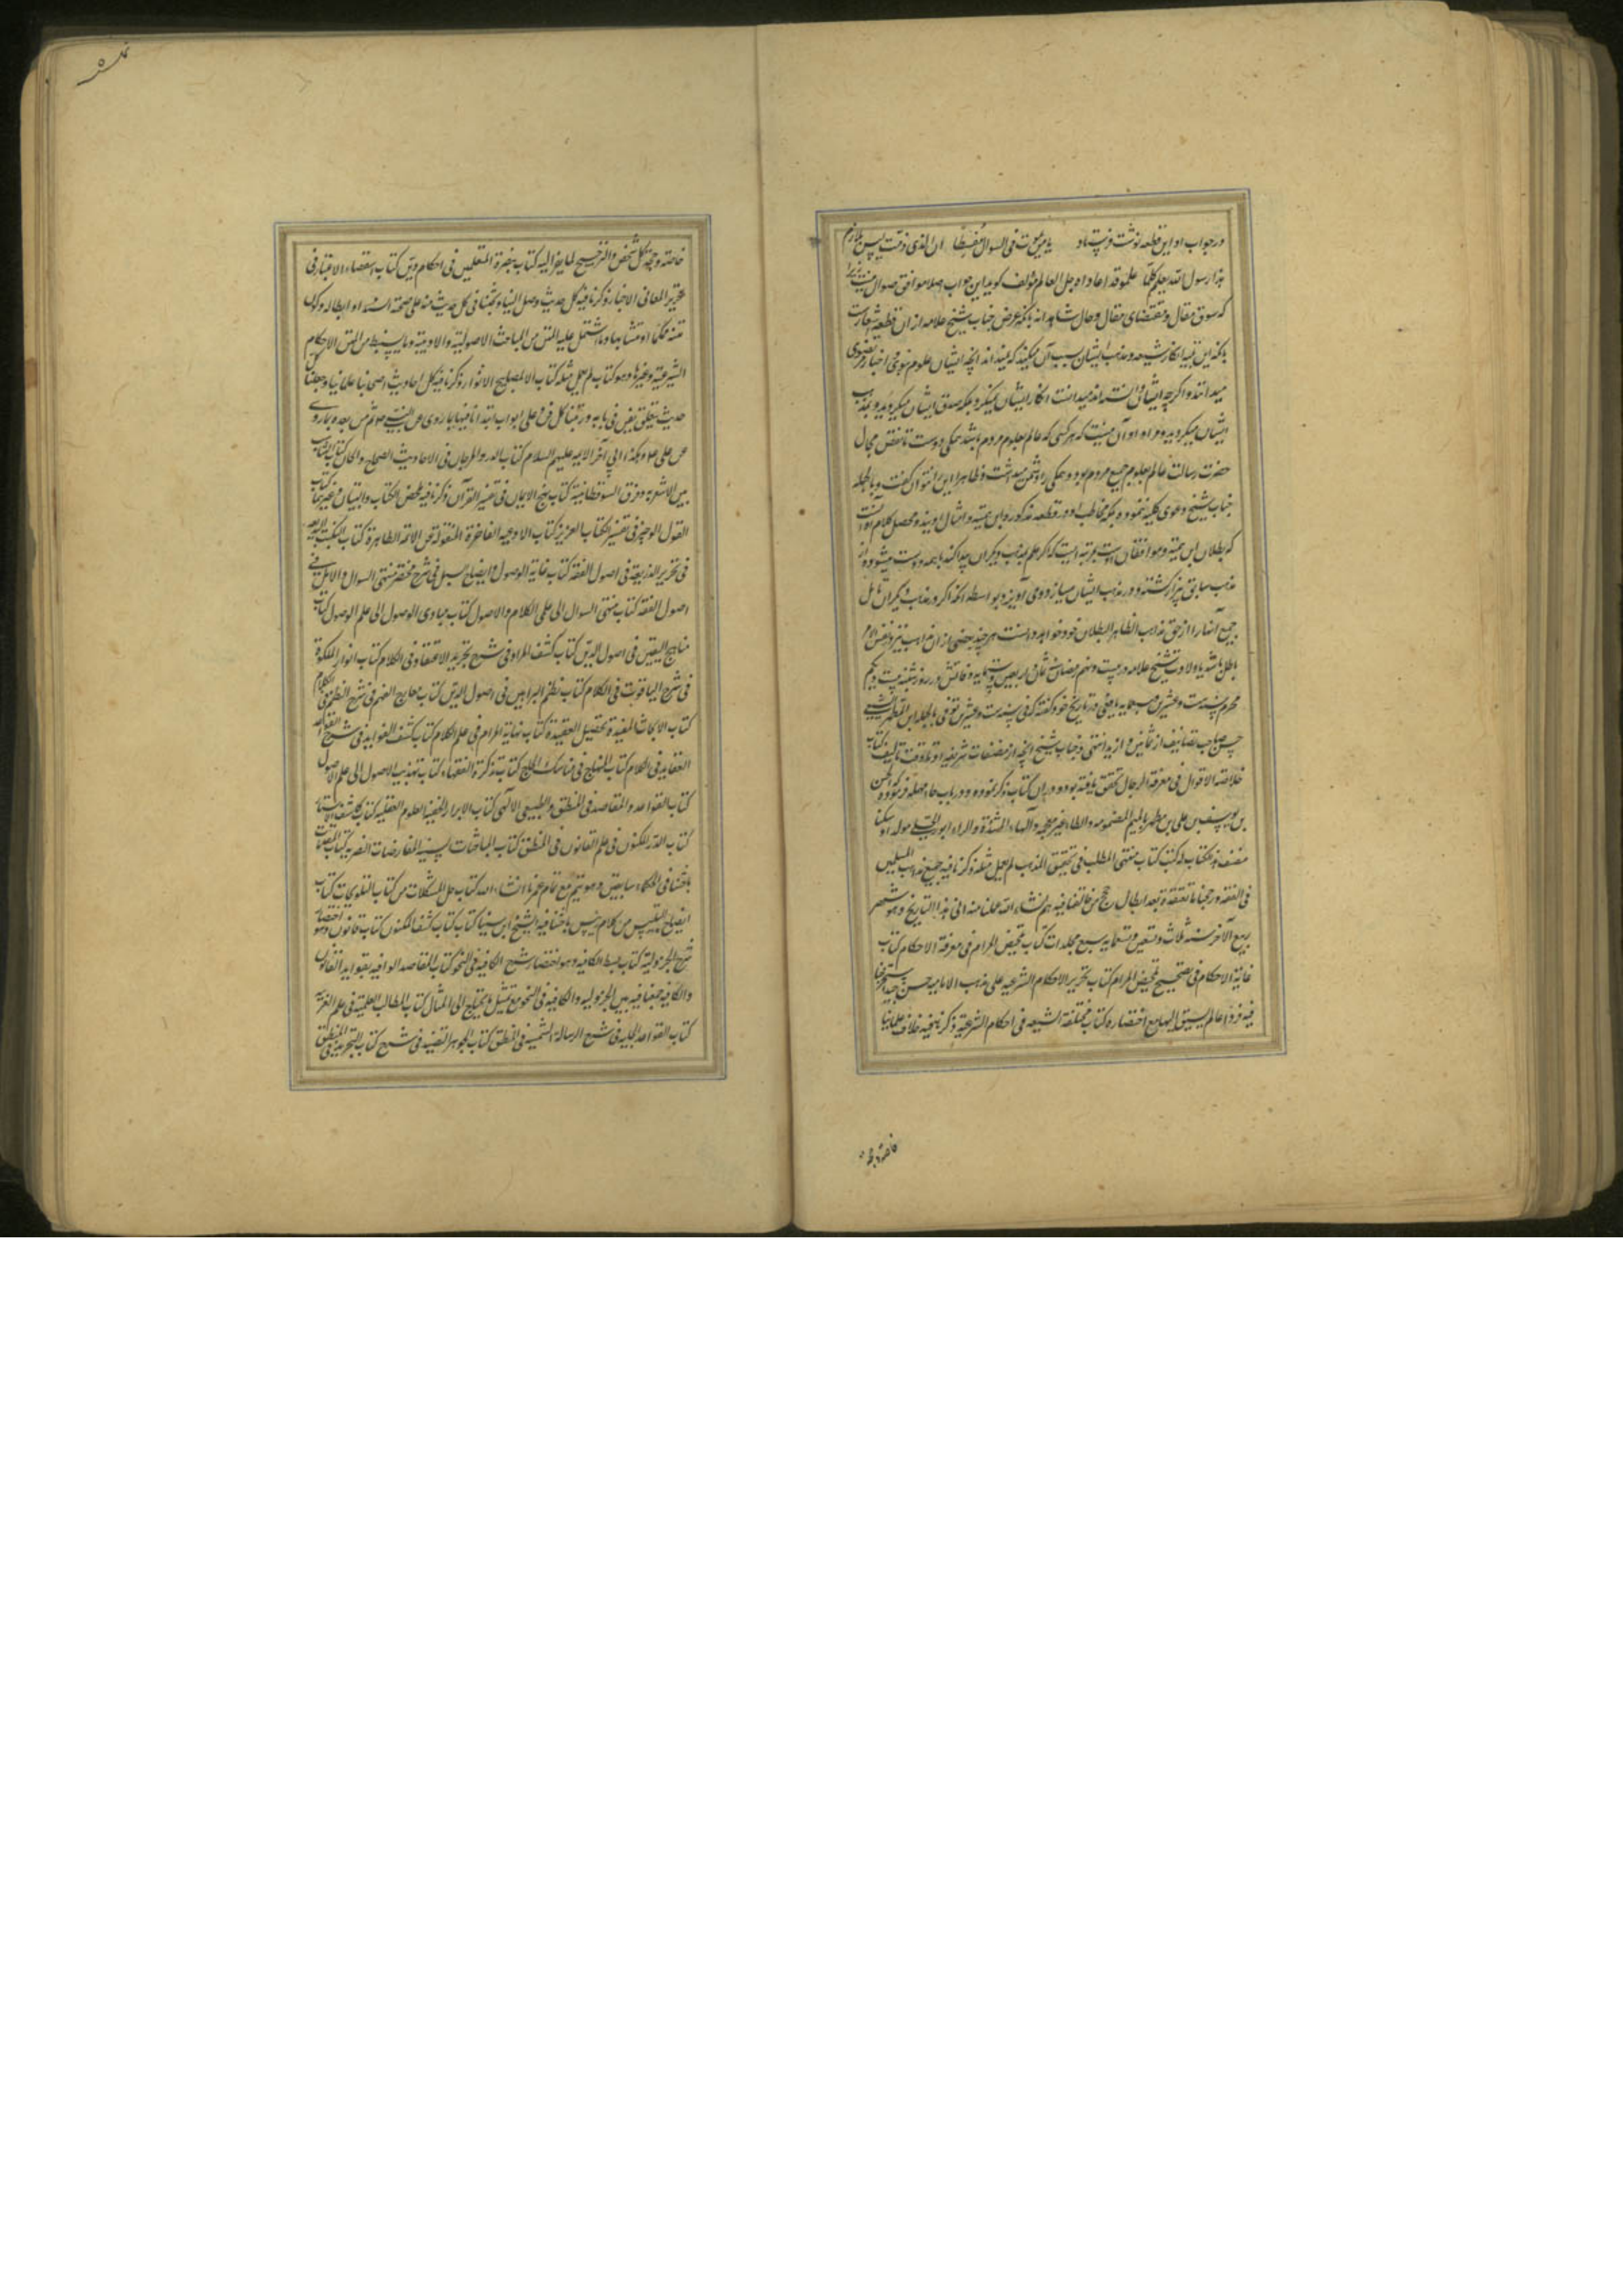 در جواب او این قطعه نوشت و فرستاد یا من یموت فی السوال مفسطا ان الذی الزمت لیس بلازم
هذا رسول الله یعلم کلما علموا وقد عاداه جل العالم مؤلف گوید این جواب اصلا موافق صواب نیست زیرا
که سوق مقال و مقتضای مقال و حال شاهدند بآنکه غرض جناب شیخ علامه از آن قطعه اشعارست
بآنکه ابن تیمیه انکار شیعه و مذهب ایشان بسبب آن میکند که نمیداند آنچه ایشان از علوم نبوی و اخبار مرتضوی
میدانند و اگر چه ایشان دانسته اند میدانست انکار ایشان نمیکرد بلکه تصدیق ایشان میکرد و بمذهب
ایشان میگروید و مراد او آن نیست که هر کسی که عالم بعلوم مردم باشد همگی دوست
حضرت رسالت عالم بعلوم جمیع مردم بود و همگی او را دشمن میداشت و ظاهرا این را نتوان گفت و بالجمله
جناب شیخ دعوی کلیه ننموده بلکه مخاطب او در قطعه مذکوره ابن تیمیه و امثال اویند و محصل کلام او آنست
که بطلان ابن تیمیه و موافقان او بمرتبه ایست که اگر علم بمذهب دیگران پیدا کند با همه دوست میشود و از
مذهب سابق بیزار گشته و در مذهب ایشان
جمیع آنها را از حق مذاهب الظاهر البطلان خود خواهد دانست هر چند بعضی از آن مذاهب نیز در نفس الامر
باطل باشد ولادت شیخ علامه در بیست و نهم رمضان ثمان و اربعین و ستمایه و وفاتش در روز شنبه بیست و یکم
محرم سنه ست و عشرین و سبعمایه یافعی در تاریخ خود گفته که فی سنه ست و عشرین توفی بالحله ابن المطهر الشیعی
حسن صاحب تصانیف از ثمانین و ازید انتهی و جناب شیخ آنچه از مصنفات شریفه او تا وقت تالیف کتاب
خلاصة الاقوال فی معرفة الرجال تحقق یافته بود در آن کتاب ذکر نموده و در باب حاء مهمله فرموده الحسن
بن یوسف بن علی بن مطهر بالمیم المضمومه و الطاء غیر معجمه و الهاء المشددة و الراء ابو منصور الحلی مولدا و مسکنا
مصنف هذا الکتاب له کتب کتاب منتهی المطلب فی تحقیق المذهب لم یعمل مثله ذکرنا فیه جمیع مذاهب المسلمین
فی الفقه و رجحنا ما نعتقده بعد ابطال حجج من خالفنا فیه یتم انشاء الله عملنا منه الی هذا التاریخ و هو شهر
ربیع الآخر سنه ثلاث و تسعین و ستمایه سبع مجلدات کتاب تلخیص المرام فی معرفة الاحکام کتاب
غایة الاحکام فی تصحیح تلخیص المرام کتاب تحریر الاحکام الشرعیه علی مذهب الامامیه حسن جید استخرجنا
فیه فروعا لم نسبق الیها مع اختصاره کتاب مختلف الشیعه فی احکام الشریعه ذکرنا فیه خلاف علمائنا
خاصة و حجة کل شخص و الترجیح لما یصار الیه کتاب تبصرة المتعلمین فی احکام الدین کتاب استقصاء الاعتبار فی
تحریر المعانی الاخبار ذکرنا فیه کل حدیث وصل الینا و بحثنا فی کل حدیث منه علی صحة السند او ابطاله و کون
متنه محکما او متشابها و ما اشتمل علیه المتن من المباحث الاصولیة و الادبیة و ما یستنبط من المتن من الاحکام
الشرعیة و غیرها و هو کتاب لم یعمل مثله کتاب المصابیح الانوار ذکرنا فیه کل احادیث علمائنا و جعلنا کل
حدیث یتعلق بفن فی بابه و رتبنا کل فن علی ابواب ابتدأنا فیها بما روی عن النبی ثم من بعده بما روی
عن علی و هکذا الی آخر الائمه علیهم السلام کتاب الدر و المرجان فی الاحادیث الصحاح و الحسان کتاب التناسب
بین الاشعریه و فرق السوفسطائیه کتاب نهج الایمان فی تفسیر القرآن ذکرنا فیه ملخص الکشاف و التبیان و غیرهما کتاب
القول الوجیز فی تفسیر الکتاب العزیز کتاب الادعیه الفاخرة المنقوله عن الائمه الطاهرة کتاب النکت البدیعه
فی تحریر الذریعه فی اصول الفقه کتاب غایة الوصول و ایضاح السبل فی شرح مختصر منتهی السوال و الامل فی
اصول الفقه کتاب منتهی السوال الی علمی الکلام و الاصول کتاب مبادی الوصول الی علم الوصول کتاب
مناهج الیقین فی اصول الدین کتاب کشف المراد فی شرح تجرید الاعتقاد فی الکلام کتاب انوار الملکوت
فی شرح الیاقوت فی الکلام کتاب نظم البراهین فی اصول الدین کتاب معارج الفهم فی شرح النظم فی الکلام
کتاب الابحاث المفیدة فی تحصیل العقیدة کتاب نهایة المرام فی علم الکلام کتاب کشف الفواید فی شرح القواعد
العقاید فی الکلام کتاب المنهاج فی مناسک الحاج کتاب تذکرة الفقهاء کتاب تهذیب الاصول الی علم الاصول
کتاب القواعد و المقاصد فی المنطق و الطبیعی و الالهی کتاب الاسرار الخفیه فی العلوم العقلیه کتاب کاشف الاستار
کتاب الدر المکنون فی علم القانون فی المنطق کتاب المباحثات السنیه و المعارضات النصریه کتاب المقاومات
باحثنا فیه الحکماء السابقین و هو یتم مع تمام عمرنا انشاء الله کتاب حل المشکلات من کتاب التلویحات کتاب
ایضاح التلبیس من کلام الرئیس باحثنا فیه الشیخ ابن سینا کتاب کشف المکنون من کتاب قانون و هو اختصار
شرح الجزولیة کتاب بسط الکافیه و هو اختصار شرح الکافیه فی النحو کتاب المقاصد الوافیه بفواید القانون
و الکافیه جمعنا فیه بین الجزولیه و الکافیه فی النحو مع تمثیل ما یحتاج الی المثال کتاب المطالب العلیه فی علم العربیه
کتاب القواعد الجلیه فی شرح الرسالة الشمسیه فی المنطق کتاب الجوهر النضید فی شرح کتاب التجرید فی المنطق
خاصة و حجة